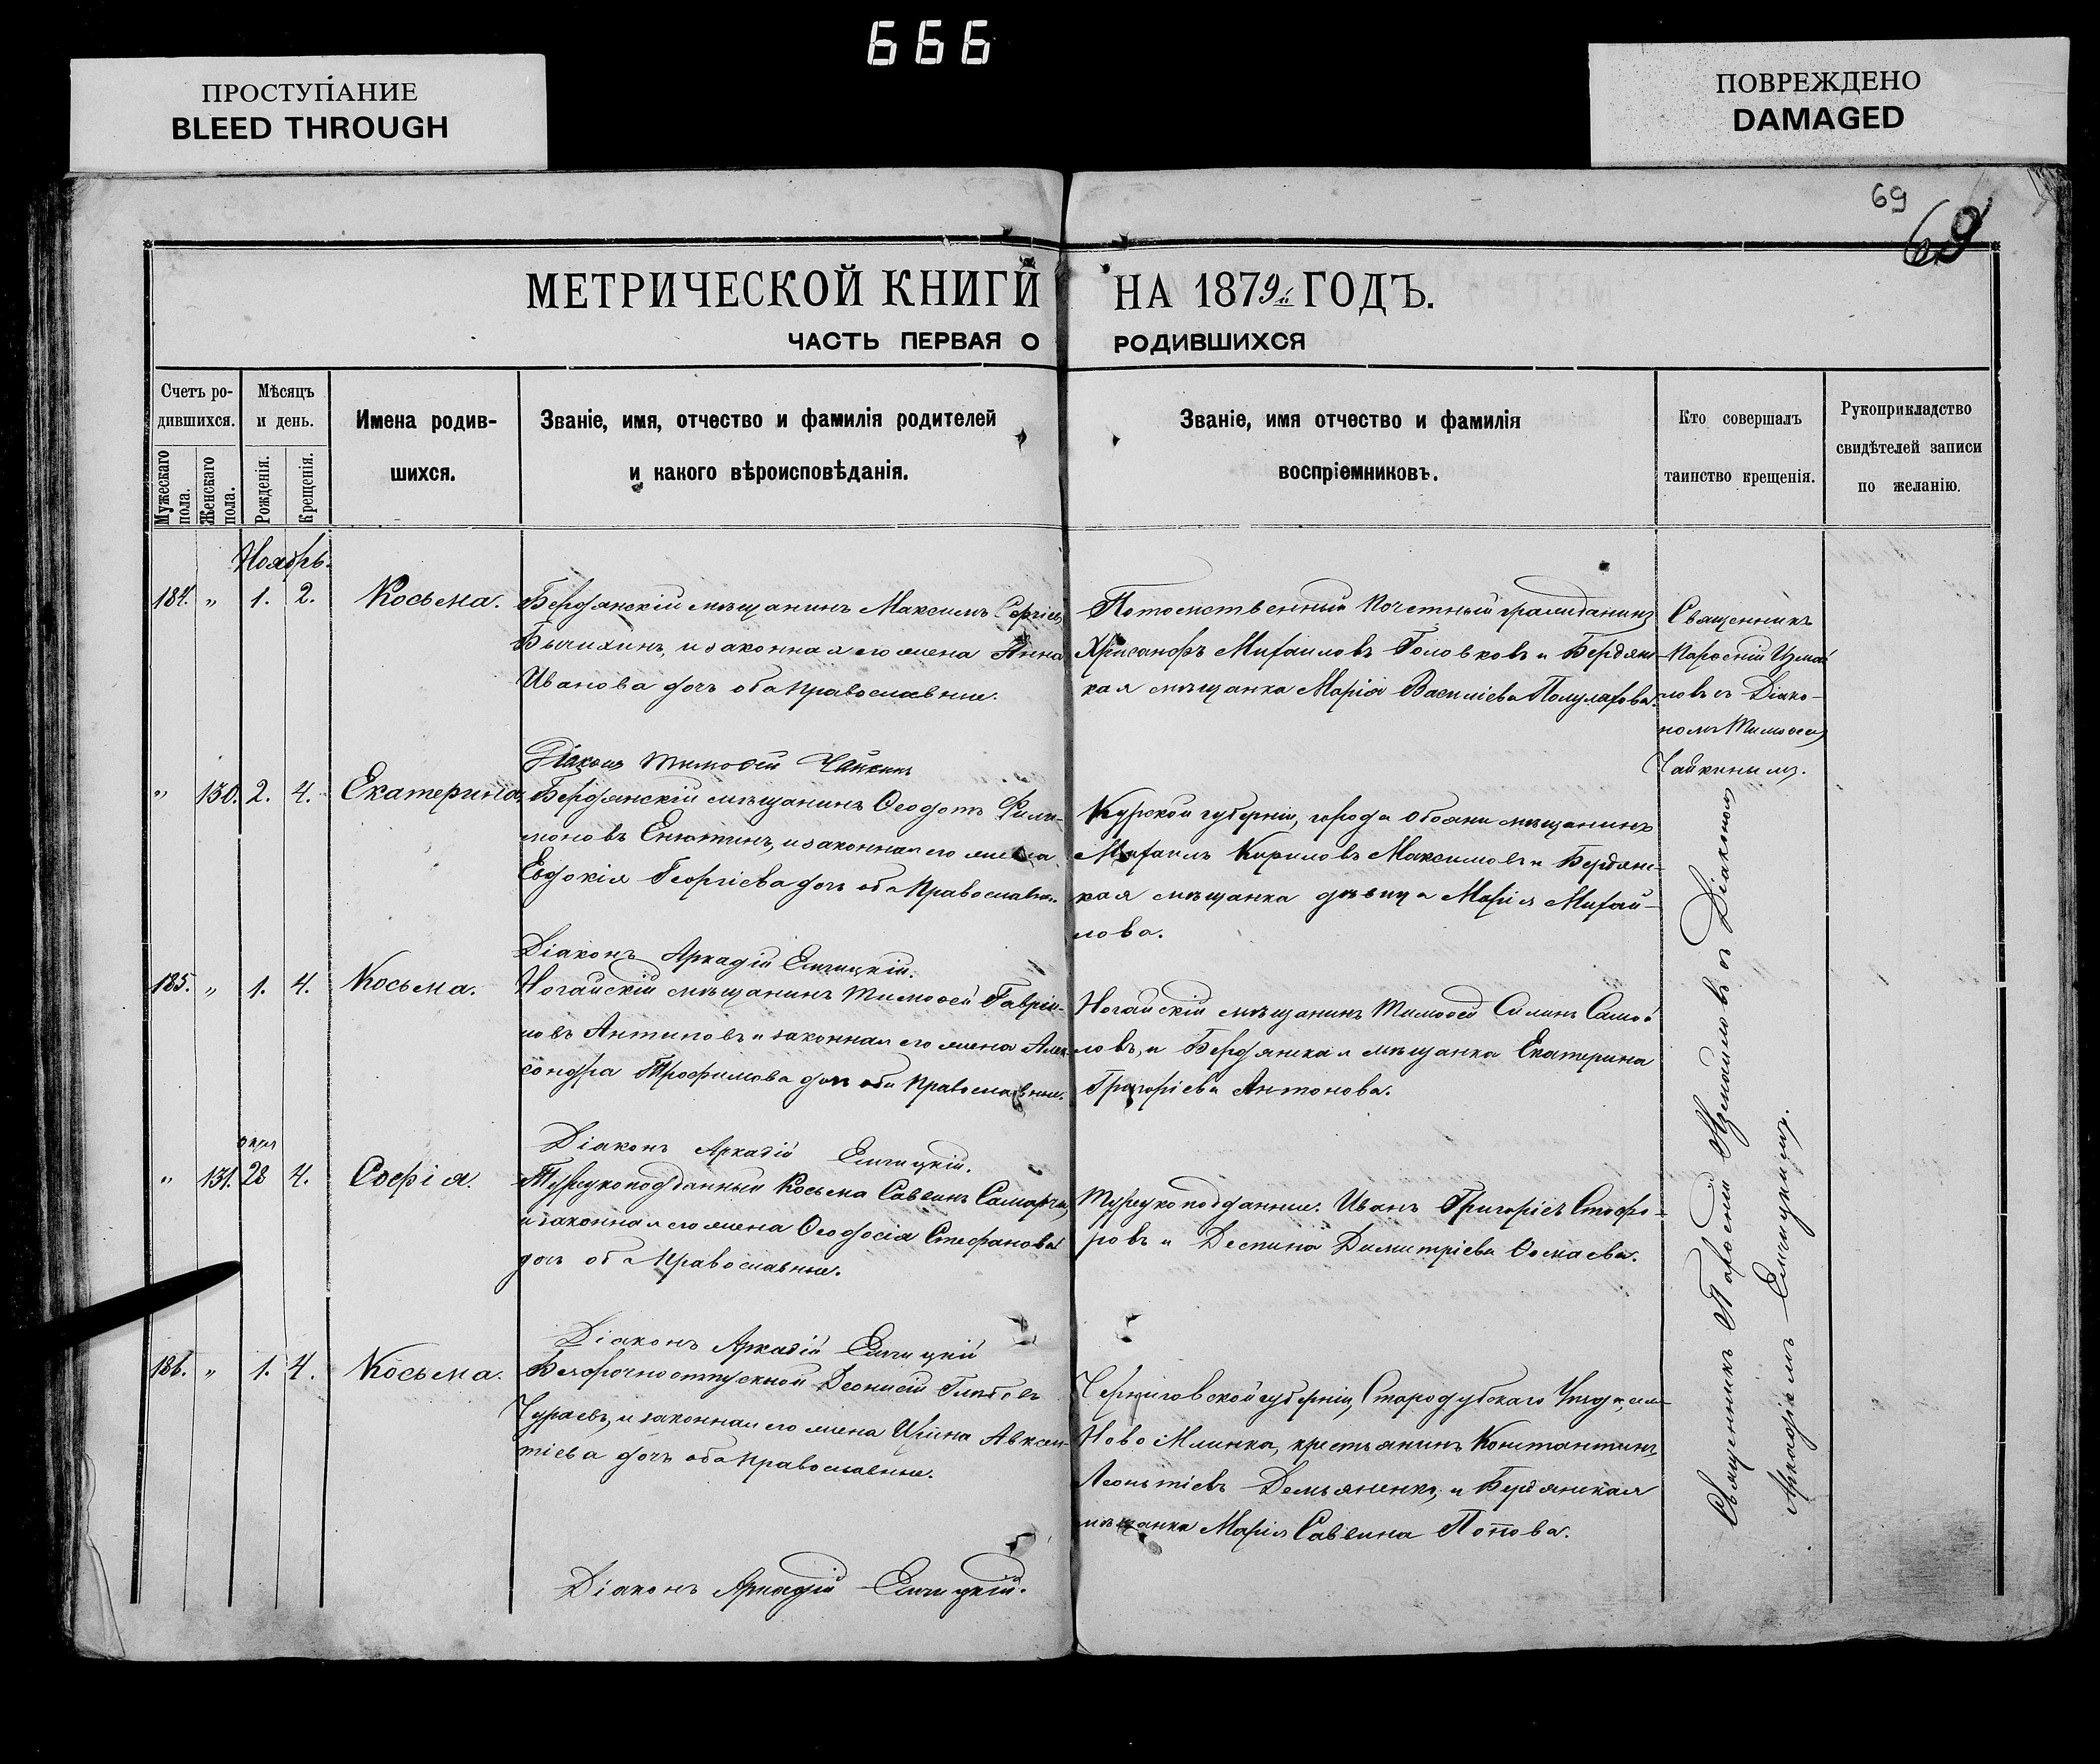 666
ПРОСТУПАНИЕ
BLEED THROUGH
ПОВРЕЖДЕНО
DAMAGED
69
69
МЕТРИЧЕСКОЙ КНИГИ НА 1879й ГОДЪ.
ЧАСТЬ ПЕРВАЯ О РОДИВШИХСЯ
Счетъ ро-
дившихся.
Мужескаго
пола.
Женскаго
пола.
Мѣсяцъ
и день.
Рожденія.
Крещенія.
Имена родив-
шихся.
Званіе, имя, отчество и фамилія родителей
и какого вѣроисповѣданія.
Званіе, имя отчество и фамилія
воспріемниковъ.
Кто совершалъ
таинство крещенія.
Рукоприкладство
свидѣтелей записи
по желанію.
Ноябрь.
184. " 1. 2. Косьма.
Бердянскій мѣщанинъ Максимъ Сергіевъ
и законная его жена Анна
Иванова дочь оба православные.
Потомственный почетный гражданинъ
Хрисанфъ Михаиловъ Головковъ и Бердянс-
кая мѣщанка Марія Василіева
Священникъ
Парѳеній Измаи
ловъ съ Діако-
номъ Тимоѳеемъ
Чайкинымъ.
Діаконъ Тимоѳей Чайкинъ
" 130. 2. 4. Екатерина.
Бердянскій мѣщанинъ Ѳеодотъ Фили-
моновъ Енютинъ, и законная его жена
Евдокія Георгіева дочь оба православные.
Курской губерніи, города Обояни мѣщанинъ
Михаилъ Кириловъ Максимовъ и Бердянс-
кая мѣщанка дѣвица Марія Михаи-
лова.
Діаконъ Аркадій
185. " 1. 4. Косьма.
Ногайскій мѣщанинъ Тимоѳей Гавріи-
ловъ Антиповъ и законная его жена Алек-
сандра Трофимова дочь оба православные.
Ногайскій мѣщанинъ Тимоѳей Силинъ Самой
ловъ, и Бердянская мѣщанка Екатерина
Григоріева Антонова.
Діаконъ Аркадій
" 131. 28 4. Софія.
Турецкоподданный Косьма Саввинъ
и законная его жена Ѳеодосія Стефанова
дочь оба православные.
Турецкоподданные. Иванъ Григоріевъ Стафо-
ровъ и Деспина Димитріева
Діаконъ Аркадій
186. " 1. 4. Косьма.
Безсрочноотпускной Деонисій Глѣбовъ
Чураевъ, и законная его жена Ирина Авксен-
тіева дочь оба православные.
Черниговской губерніи, Стародубскаго Уѣзда,
Ново Млинка, крестьянинъ Константинъ
Леонтіевъ Демьяненко, и Бердянская
мѣщанка Марія Саввина Попова.
Діаконъ Аркадій
Священникъ Парѳеній Измаиловъ съ Діакономъ
Аркадіемъ